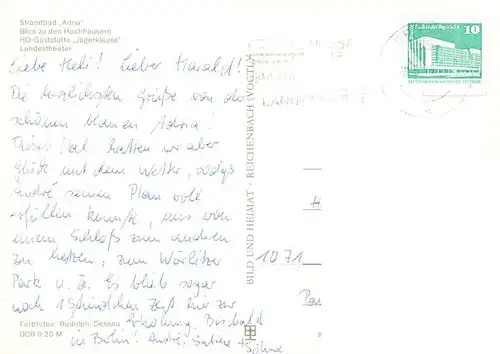 Strandbad „Adria“
Blick zu den Hochhäusern
HO-Gaststätte „Jägerklause“
Landestheater
Liebe Heli! Lieber Harald!
Die herzlichsten Grüße von der
schönen blauen Adria!
Dieses Mal hatten wir aber
Glück mit dem Wetter, sodaß
André seinen Plan voll
erfüllen konnte, uns von
einem Schloß zum anderen
zu hetzen, zum Wörlitzer
Park u. ä. Es blieb sogar
noch 1 Stündchen Zeit hier zur
Erholung. Bis bald
in Berlin! André, Sabine +
Söhne
Farbfotos: Rudolph, Dessau
DDR 0,20 M
BILD UND HEIMAT · REICHENBACH (VOGTL)
10
H
1071